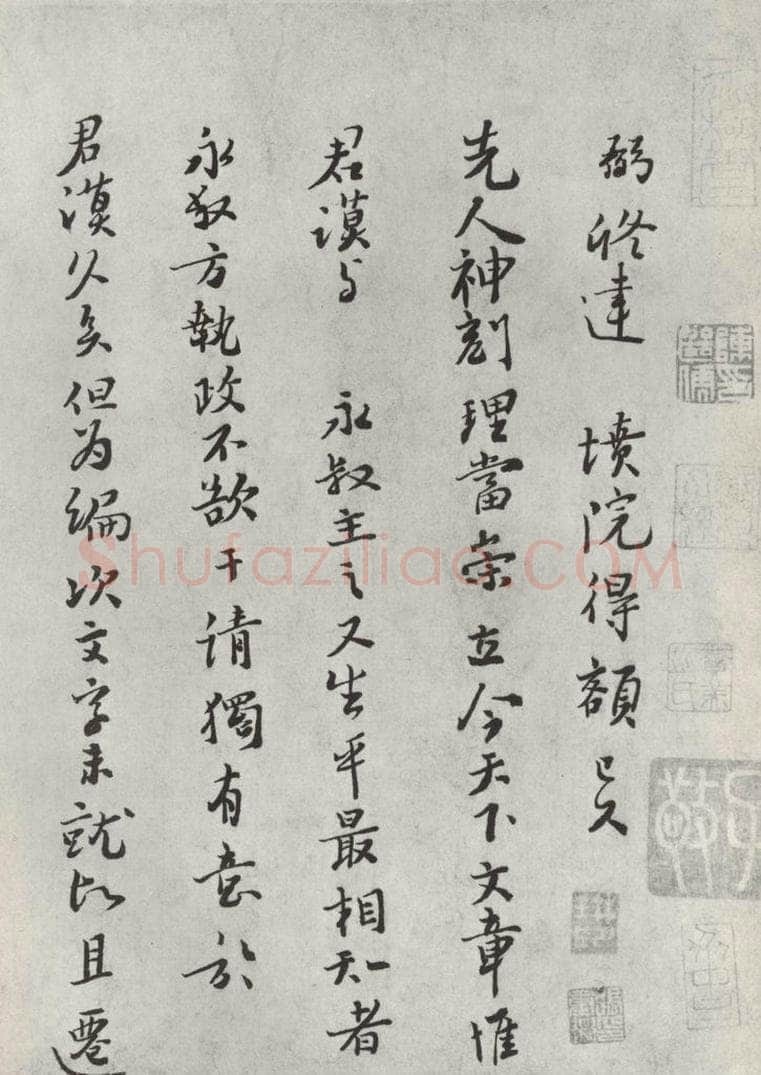 弼修建 墳院得額已久
先人神刻理當崇立今天下文章惟
君謨与 永叔主之又生平最相知者
永叔方執政不欲干请獨有意於
君謨久矣但为編次文字未就故且遷
Shufaziliao.COM